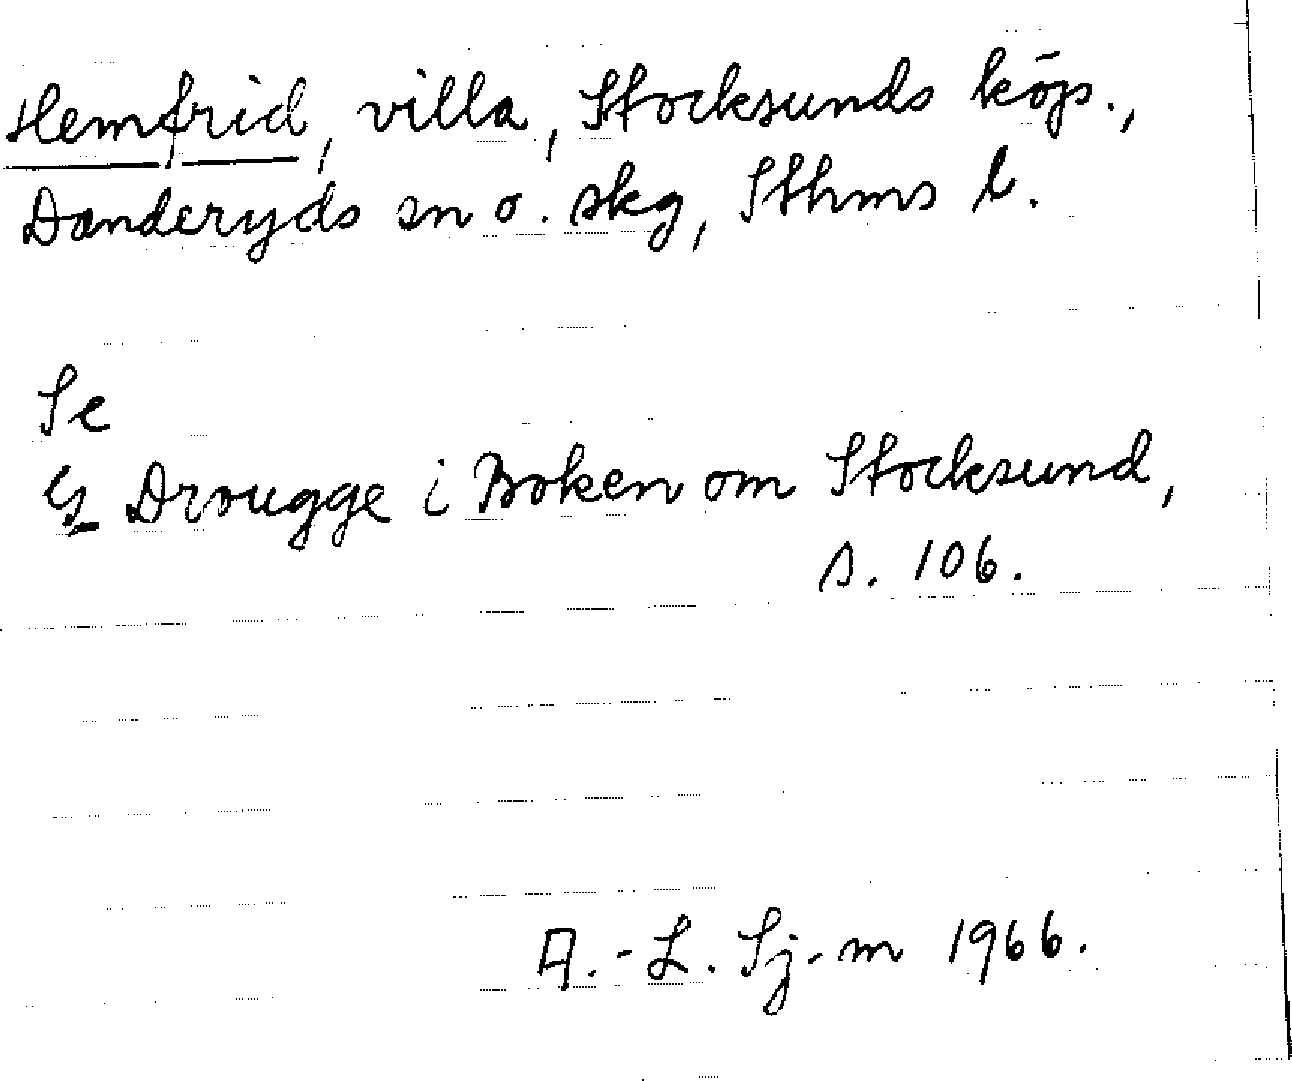 Hemfrid, villa, Stocksunds köp.,
Danderyds sn o. skg, Sthms l.
Se
G Drougge i Boken om Stocksund,
s. 106.
A.-L. Sj-m 1966.